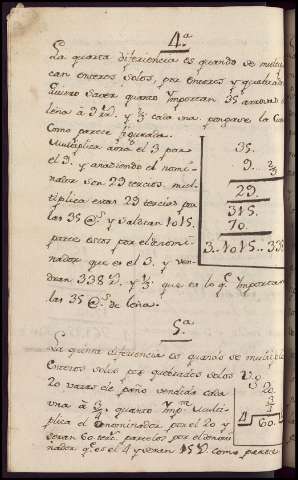 4.ª
La quarta diferiencia es quando se multipli
can enteros solos, por enteros y quebrados
Quiero saver quanto Importan 35 arrovas de
leña à 9 rˢ. y ⅔ cada una. pongase la
Como parece figurada.
Multiplica aora el 3 por
el 9. y anadiendo el nomi-
nador son 29 tercios, mul-
tiplica estos 29 tercios por
las 35 @ˢ y saldran 1015.
parte estos por el denomi-
nador que es el 3. y ven-
dran 338 rˢ. y ⅓. que es lo q.ᵉ Importan
las 35 @ˢ de leña.
35.
9.. ⅔
29.
315.
70.
3..1015..33
5.ª
La quinta diferiencia es quando se multipl
Enteros solos por quebrados solos V.g.
20 varas de paño vendida cada
una à ¾. quanto Imp.ᵐ Multi-
plica el Nominador por el 20 y
seran 60. partelos por el denomi
nador q.ᵉ es el 4 y seran 15 como parece
20.
¾
4 60.